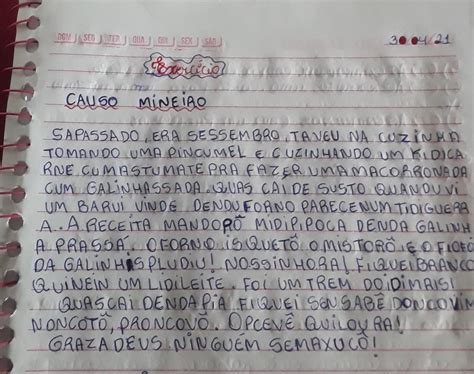 DOM SEG TER QUA QUI SEX SÁB
30 04/21
Exercício
CAUSO MINEIRO
SAPASSADO, ERA SESSEMBRO, TAVEU NA CUZINHA
TOMANDO UMA PINCUMEL E CUZINHANDO UM KIDICA
RNE CUMASTUMATE PRA FAZER UMAMACORRONADA
CUM GALINHASSADA. QUAS CAI DE SUSTO QUANDUVI
UM BARUI VINDE DENDUFORNO PARECENUMTIDIGUERR
A. A RECEITA MANDOPÔ MIDIPIPOCA DENDA GALINH
A PRASSÁ. OFORNO ISQUETÔ OMISTORÔ E O FIOFO
DA GALINHISPLUDIU! NOSSINHORA! FIQUEIBRANCO
QUINEIN UM LIDILEITE. FOI UM TREM DOIDIMAIS!
QUASCAI DENDAPIA! FIQUEI SENSABÊ DONCOVIN
NONCOTÔ, PRONCOVÔ. OPCEVÊ QUILOURA!
GRAZADEUS NINGUÉM SEMAXUCÔ!